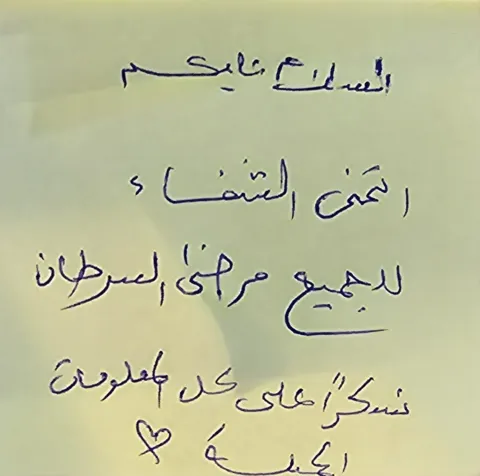 السلام عليكم
اتمنى الشفاء
لجميع مرضى السرطان
شكراً على كل المعلومات
الجميلة ♡